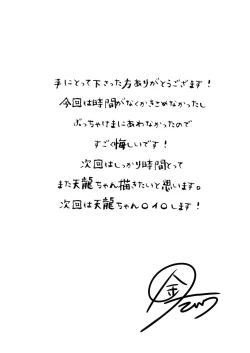 手にとって下さった方ありがとうございます！
今回は時間がなくかきこめなかったし
ぶっちゃけまにあわなかったので
すごく悔しいです！
次回はしっかり時間とって
また天龍ちゃん描きたいと思います。
次回は天龍ちゃん〇イ〇します！
金